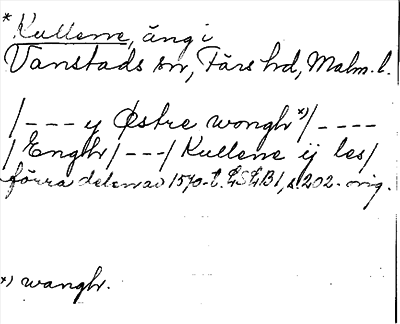 * Kullerne, äng i
Vanstads sn, Färs hd, Malm. l.
/--- y Østre wongh *)/----
/Engh/---/Kullerne ij les/
förra delen av 1570-t. LSLB1, s. 202. orig.
*) wangh.